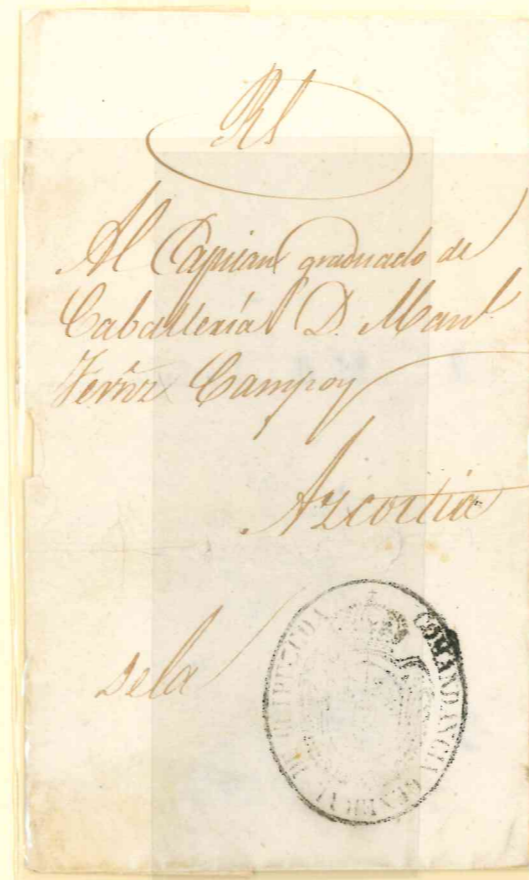 Rl
Al Capitan graduado de
Caballeria D. Manl.
Fernz Campoy
Azcoitia
De la
COMANDANCIA GENERAL DE GUIPUZCOA